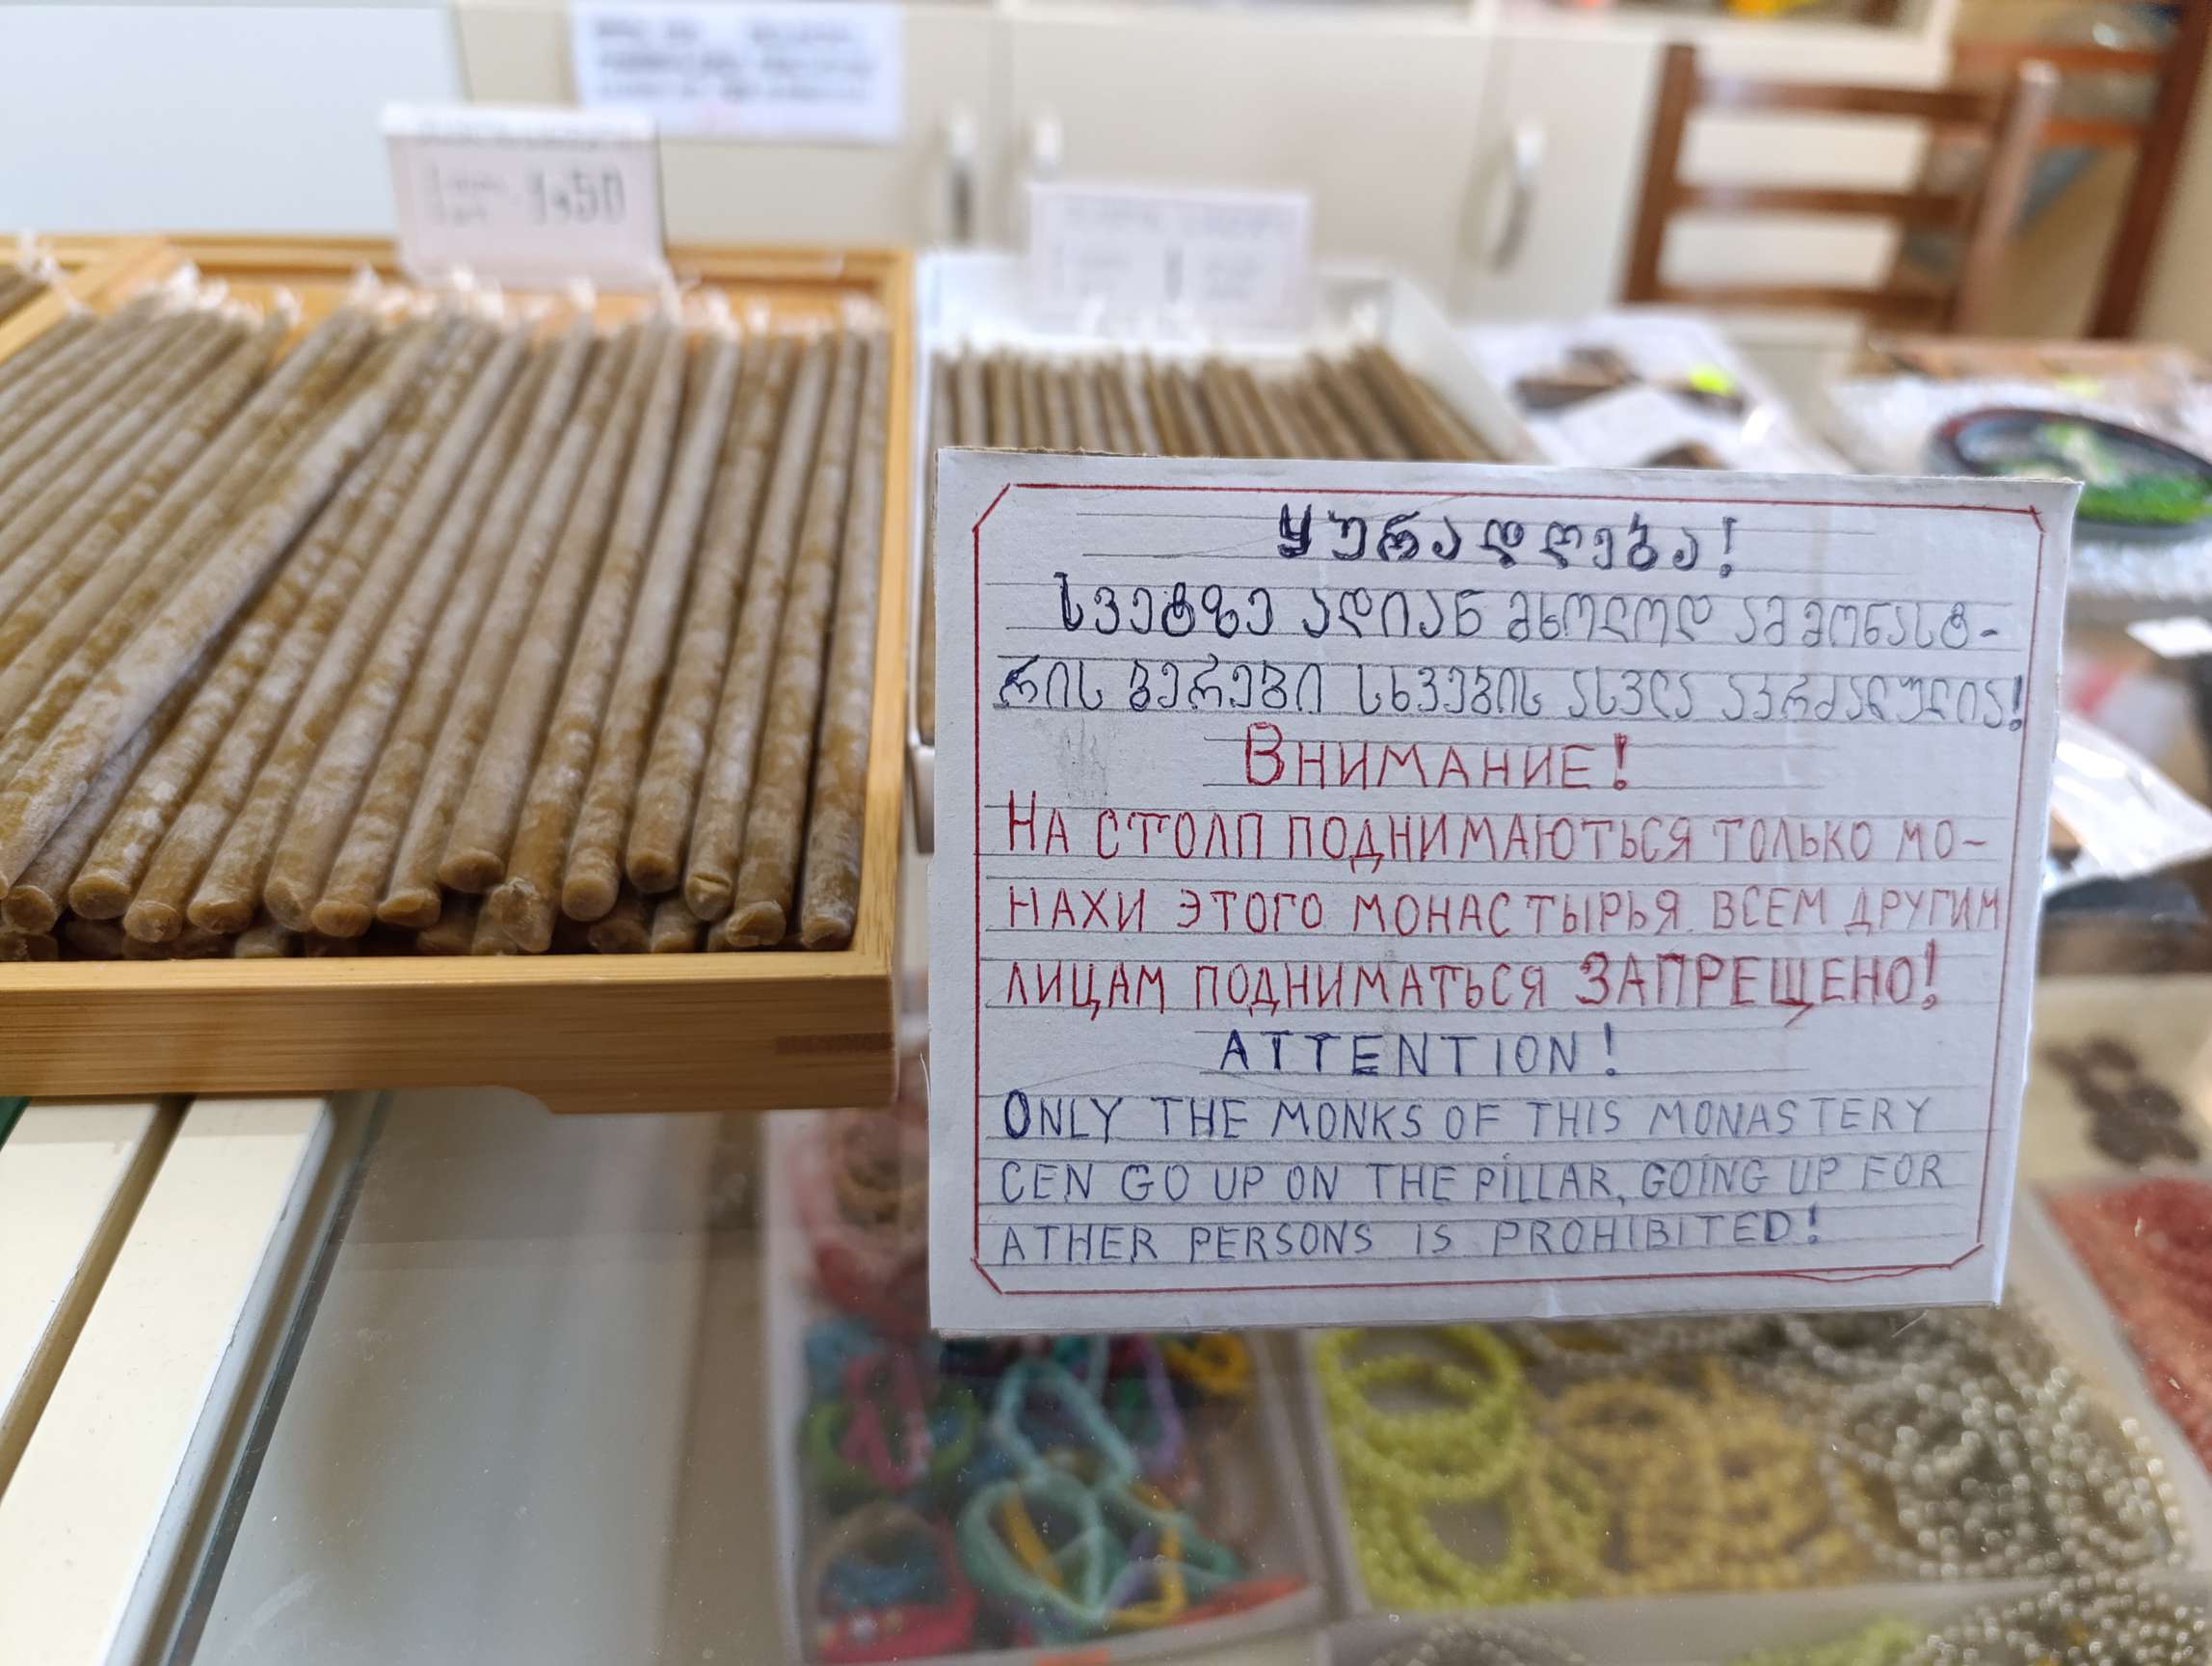 1,50
1
ყურადღება!
სვეტზე ადიან მხოლოდ ამ მონასტ-
რის ბერები სხვების ასვლა აკრძალულია!
Внимание!
На столп поднимаються только мо-
нахи этого монастырья. всем другим
лицам подниматься ЗАПРЕЩЕНО!
ATTENTION!
ONLY THE MONKS OF THIS MONASTERY
CEN GO UP ON THE PILLAR, GOING UP FOR
ATHER PERSONS IS PROHIBITED!